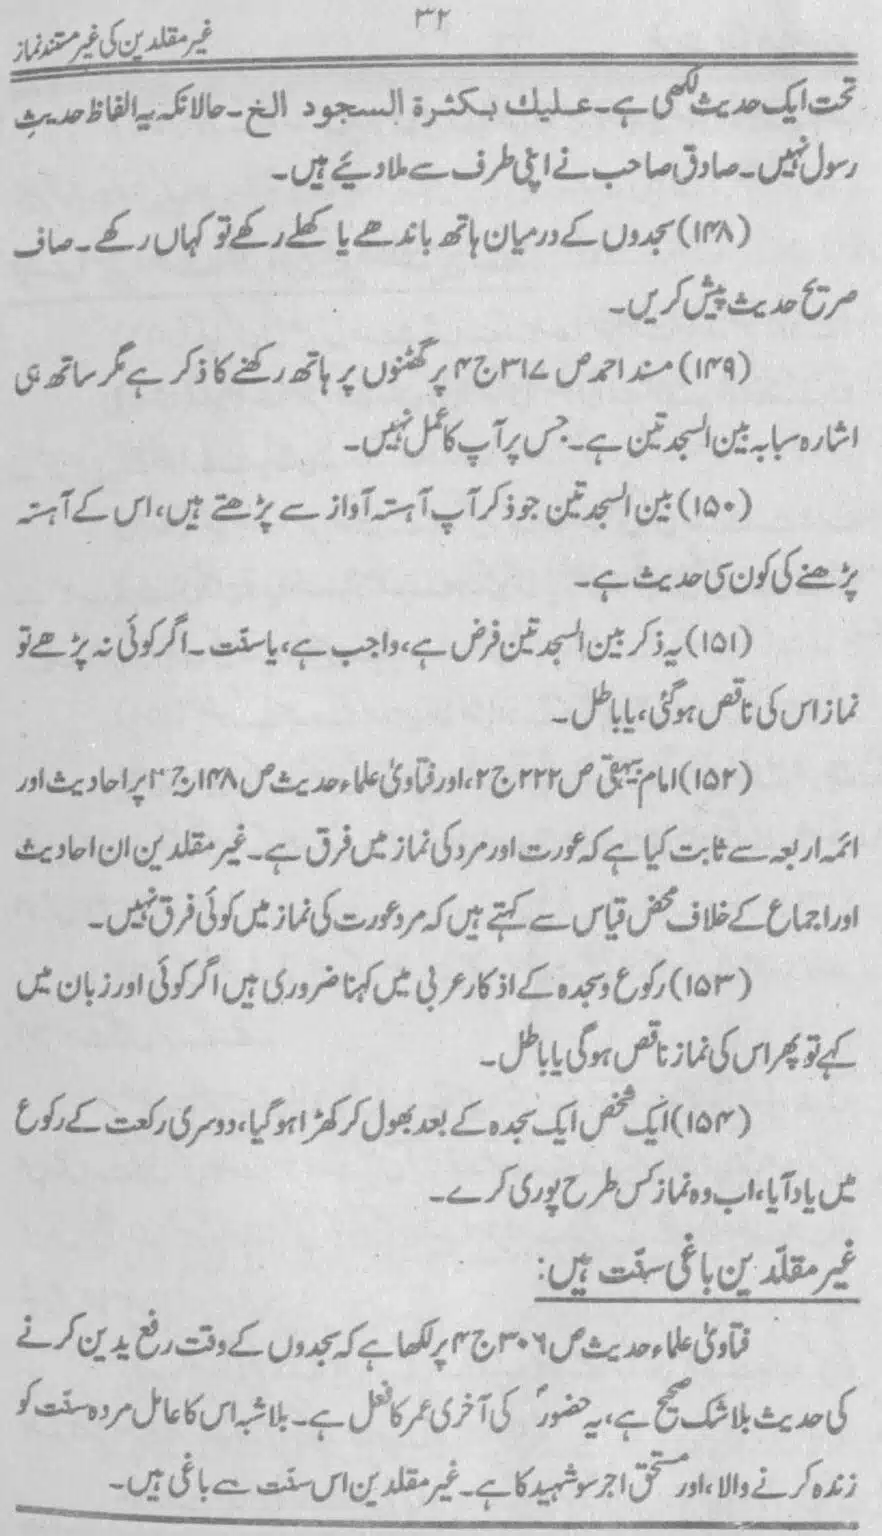 ۳۲
غیر مقلدین کی غیر مستند نماز
تحت ایک حدیث لکھی ہے۔ علیك بكثرة السجود الخ۔ حالانکہ یہ الفاظ حدیثِ
رسول نہیں۔ صادق صاحب نے اپنی طرف سے ملا دیئے ہیں۔
(۱۴۸) سجدوں کے درمیان ہاتھ باندھے یا کھلے رکھے تو کہاں رکھے۔ صاف
صریح حدیث پیش کریں۔
(۱۴۹) مسند احمد ص ۳۱۷ ج ۴ پر گھٹنوں پر ہاتھ رکھنے کا ذکر ہے مگر ساتھ ہی
اشارہ سبابہ بین السجدتین ہے۔ جس پر آپ کا عمل نہیں۔
(۱۵۰) بین السجدتین جو ذکر آپ آہستہ آواز سے پڑھتے ہیں، اس کے آہستہ
پڑھنے کی کون سی حدیث ہے۔
(۱۵۱) یہ ذکر بین السجدتین فرض ہے، واجب ہے، یا سنّت۔ اگر کوئی نہ پڑھے تو
نماز اس کی ناقص ہوگئی، یا باطل۔
(۱۵۲) امام بیہقی ص ۲۲۲ ج ۲، اور فتاویٰ علماء حدیث ص ۱۴۸ ج ۳ پر احادیث اور
ائمہ اربعہ سے ثابت کیا ہے کہ عورت اور مرد کی نماز میں فرق ہے۔ غیر مقلدین ان احادیث
اور اجماع کے خلاف محض قیاس سے کہتے ہیں کہ مرد عورت کی نماز میں کوئی فرق نہیں۔
(۱۵۳) رکوع و سجدہ کے اذکار عربی میں کہنا ضروری ہیں اگر کوئی اور زبان میں
کہے تو پھر اس کی نماز ناقص ہوگی یا باطل۔
(۱۵۴) ایک شخص ایک سجدہ کے بعد بھول کر کھڑا ہو گیا، دوسری رکعت کے رکوع
میں یاد آیا، اب وہ نماز کس طرح پوری کرے۔
غیر مقلّدین باغی سنّت ہیں:
فتاویٰ علماء حدیث ص ۳۰۶ ج ۴ پر لکھا ہے کہ سجدوں کے وقت رفع یدین کرنے
کی حدیث بلا شک صحیح ہے، یہ حضورؐ کی آخری عمر کا فعل ہے۔ بلا شبہ اس کا عامل مردہ سنّت کو
زندہ کرنے والا، اور مستحق اجر سو شہید کا ہے۔ غیر مقلدین اس سنّت سے باغی ہیں۔